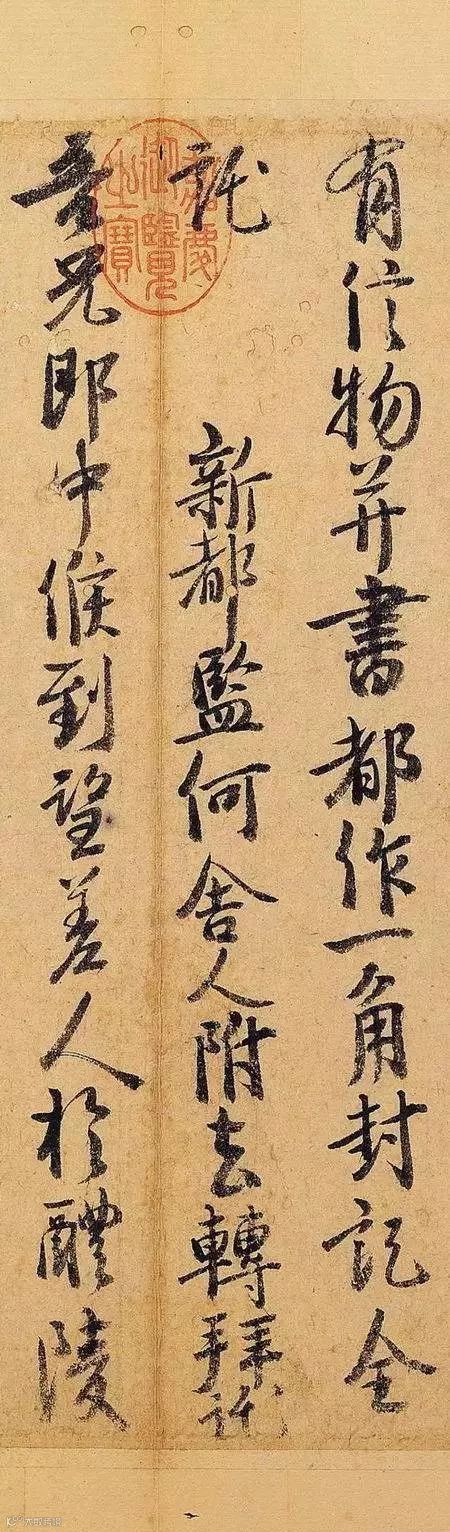 有信物并書都作一角封訖全
託 新都監何舍人附去轉拜託
吾兄郎中候到望差人於醴陵
嘉慶御覽之寶